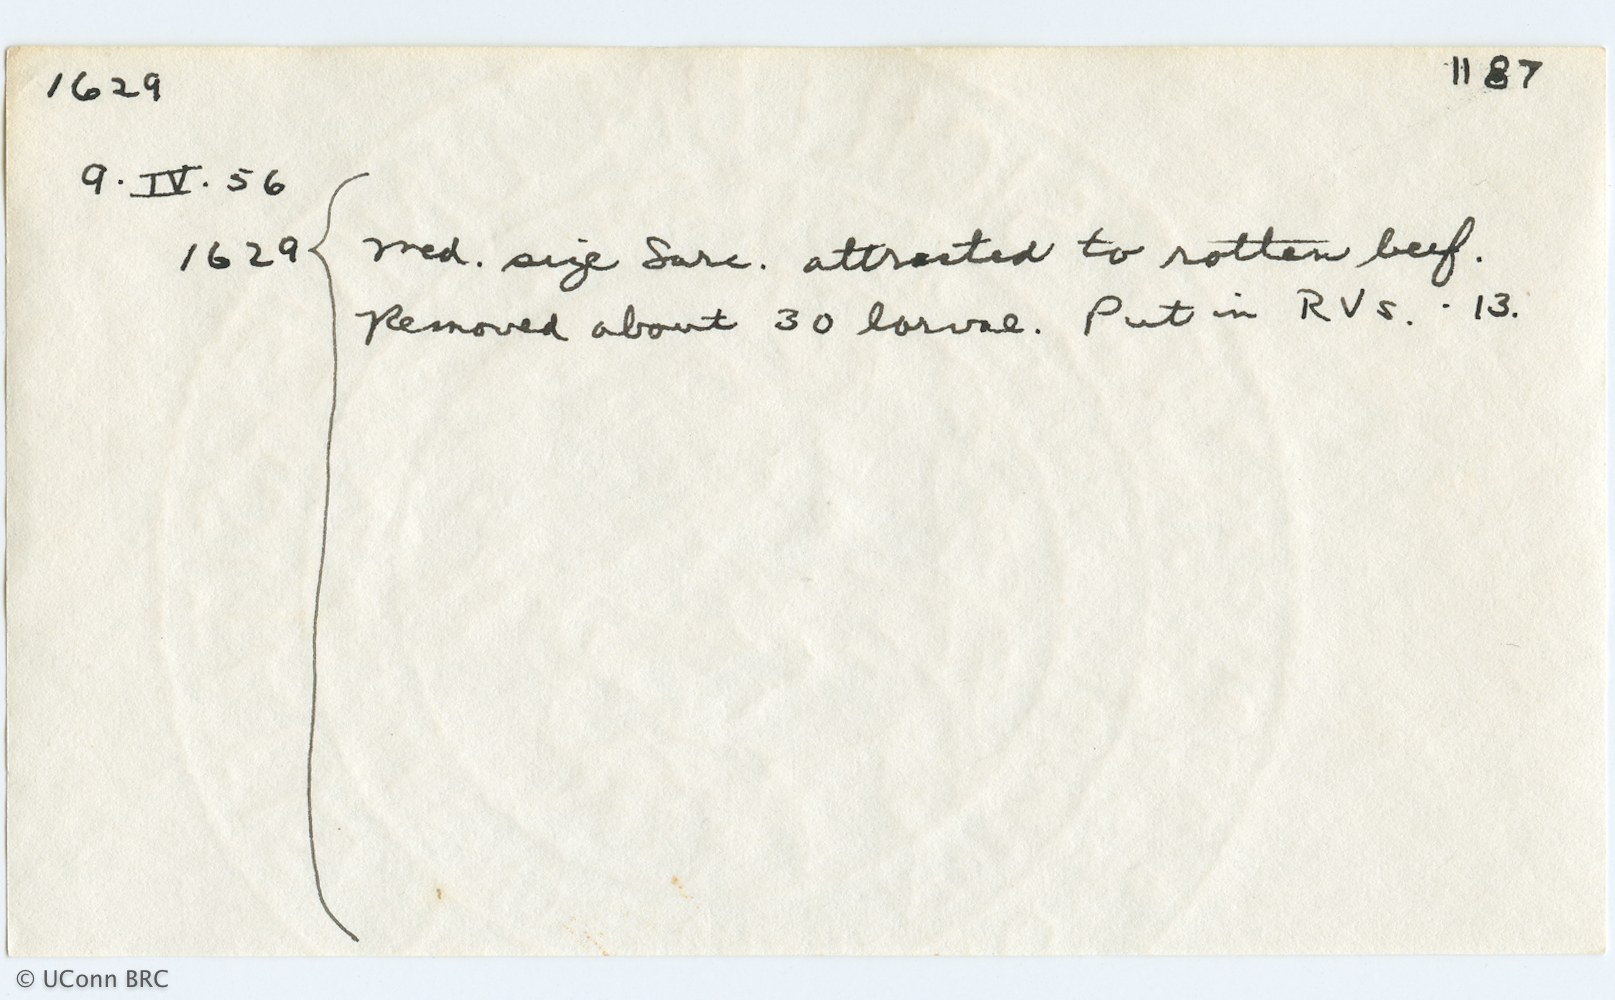 1629 1187
9. IV. 56
1629 { Med. size Sarc. attracted to rotten beef.
Removed about 30 larvae. Put in RVs. · 13.
© UConn BRC